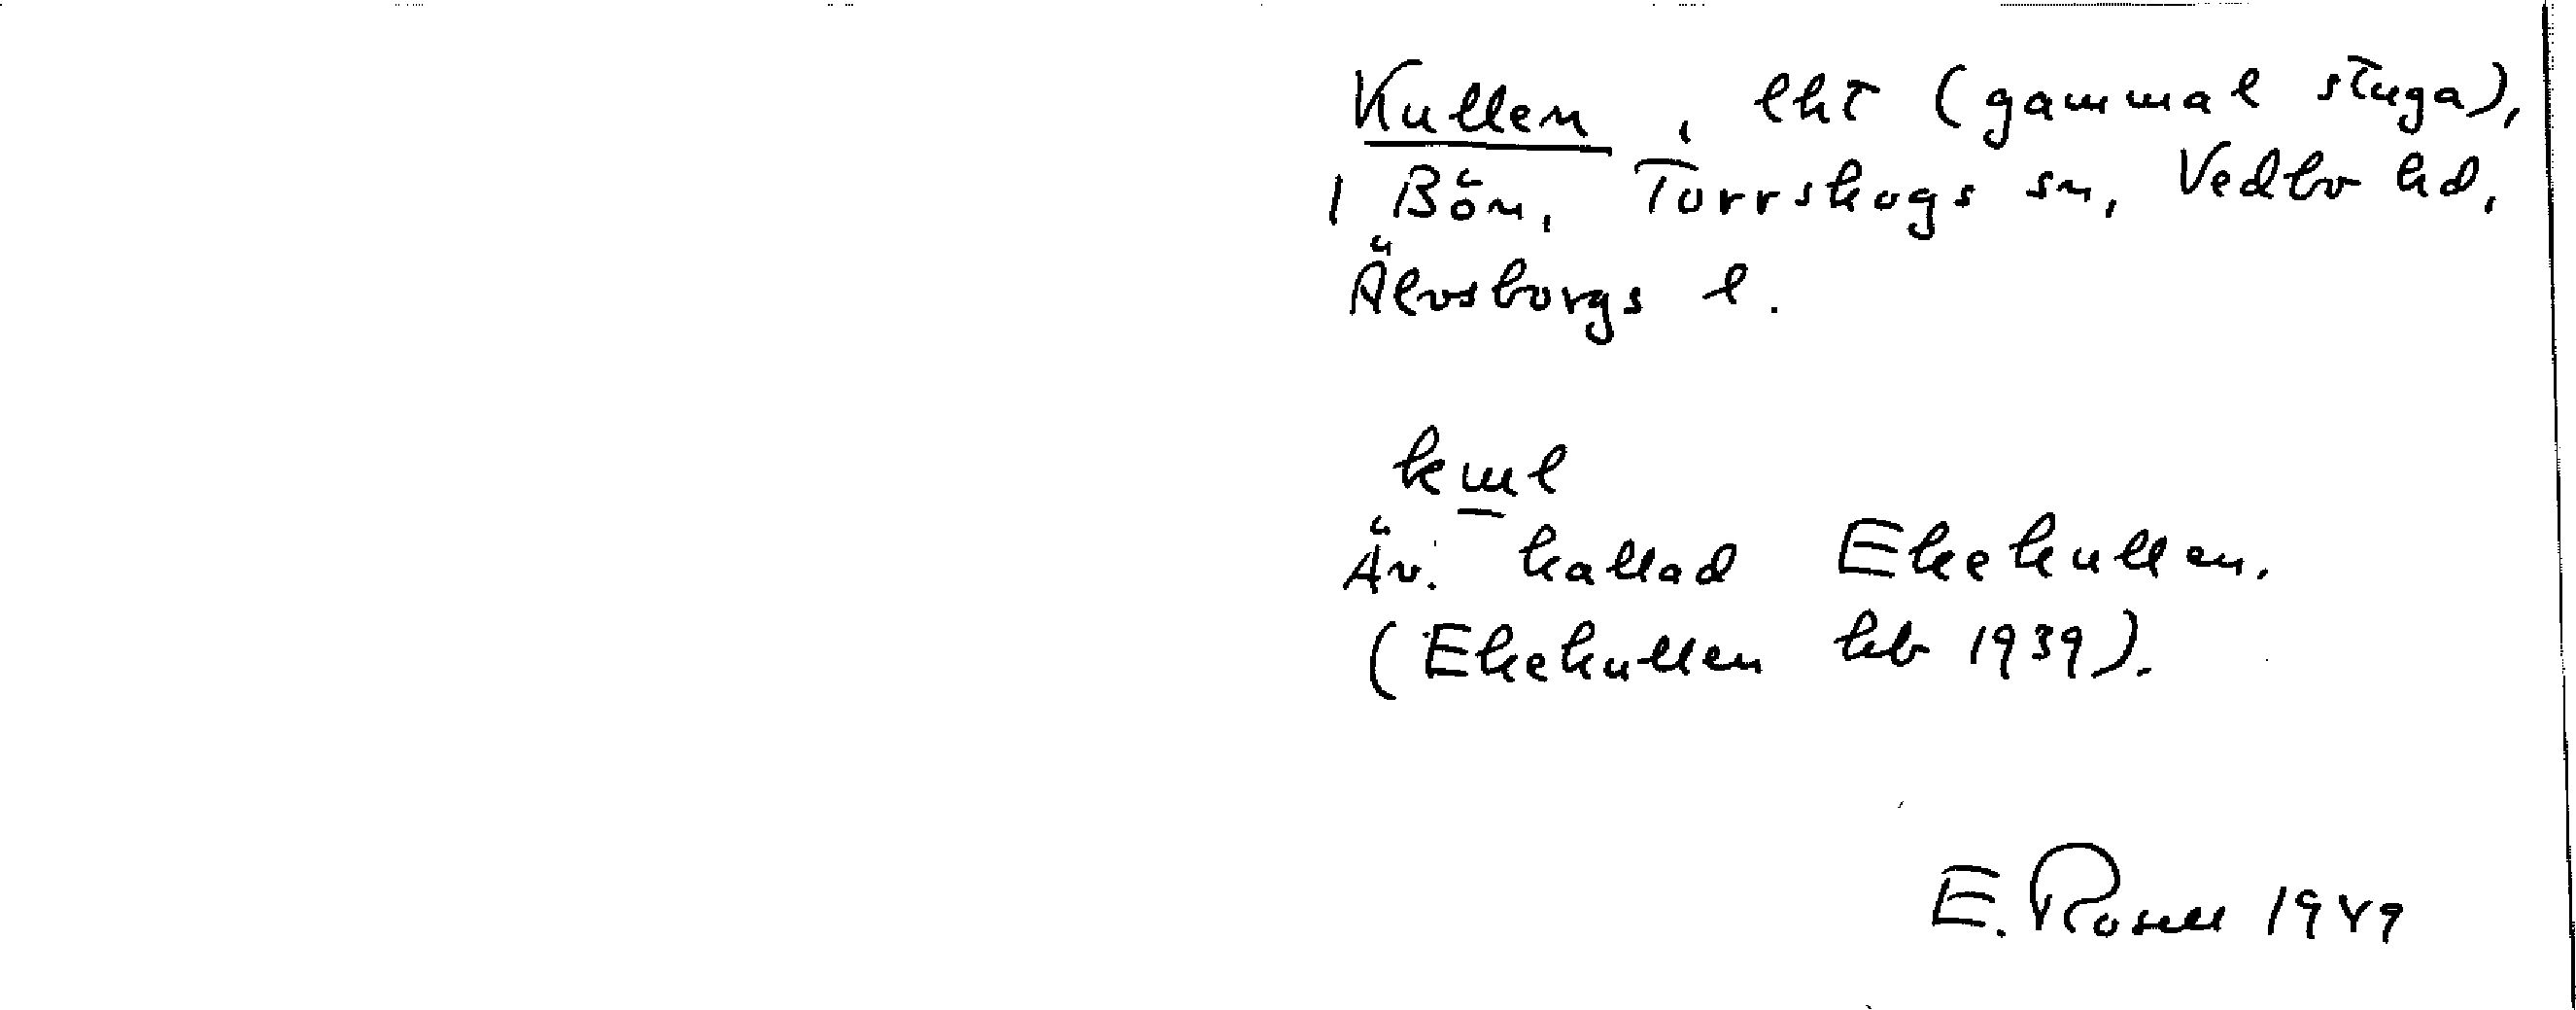 Kullen, lht (gammal stuga),
1 Bön, Torrskogs sn, Vedbo hd,
Älvsborgs l.
kɯl
Äv. kallad Ekekullen.
(Ekekullen kb 1939).
E. Rosell 1949